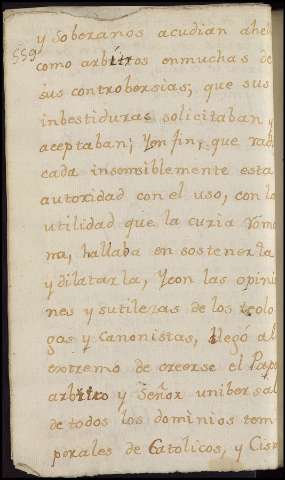 559
y soberanos acudian ahe
como arbitros enmuchas de
sus controbersias; que sus
inbestiduras solicitaban y
aceptaban; Yen fin, que radi
cada insensiblemente esta
autoridad con el uso, con la
utilidad que la curia roma
na, hallaba en sostenerla
y dilatarla, Ycon las opinio
nes y sutilezas de los teolo
gos y canonistas, llegó al
extremo de creerse el Papa
arbitro y Señor unibersal
de todos los dominios tem
porales de Catolicos, y Cism